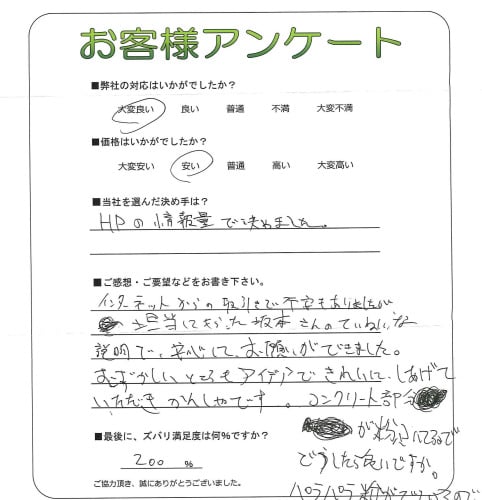 お客様アンケート
■弊社の対応はいかがでしたか?
大変良い 良い 普通 不満 大変不満
■価格はいかがでしたか?
大変安い 安い 普通 高い 大変高い
■当社を選んだ決め手は?
HPの情報量で決めました。
■ご感想・ご要望などをお書き下さい。
インターネットからの取引きで不安もありましたが
担当になった坂本さんのていねいな
説明で、安心して、お願いができました。
むずかしいところもアイデアできれいに、しあげて
いただき かんしゃです。コンクリート部分
が粉ふいてるので
どうしたら良いですか。
パラパラ粉がでているので
■最後に、ズバリ満足度は何%ですか?
200 %
ご協力頂き、誠にありがとうございました。